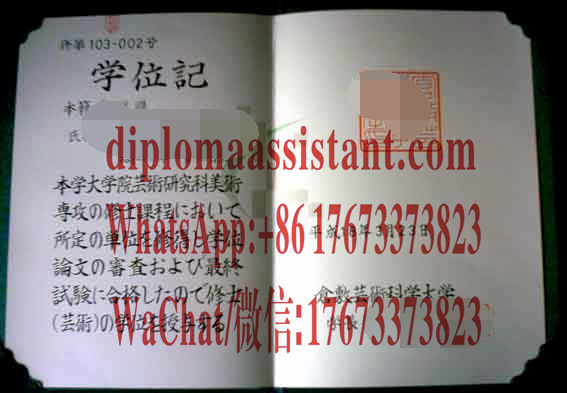 修第103-002号
学位記
本籍
氏
本学大学院芸術研究科美術
専攻の修士課程において
所定の単位を修得し学位
論文の審査および最終
試験に合格したので修士
(芸術)の学位を授与する
平成18年3月23日
倉敷芸術科学大学
diplomaassistant.com
WhatsApp:+86 17673373823
WaChat/微信:17673373823